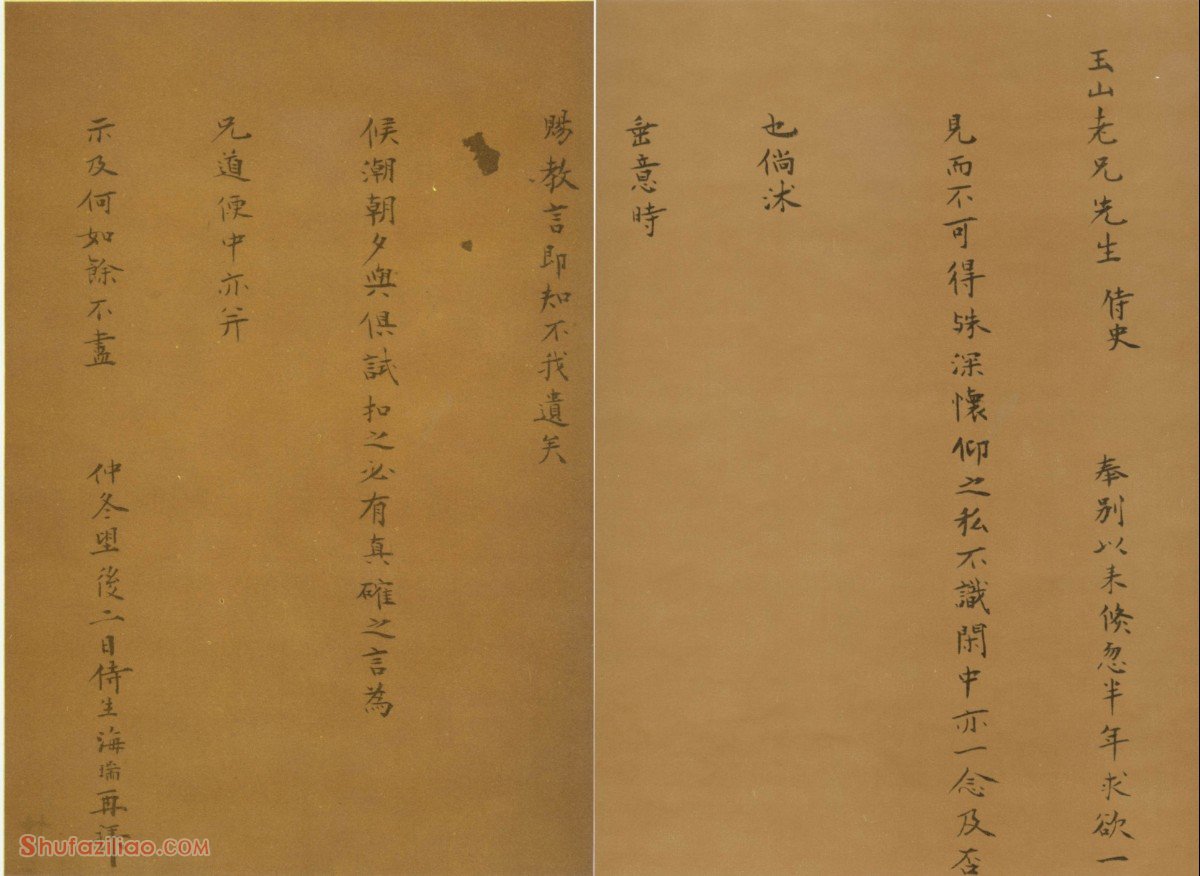 玉山老兄先生 侍史 奉別以来倐忽半年求欲一
見而不可得殊深懷仰之私不識閑中亦一念及否
也倘沐
垂意時
賜教言即知不我遺矣
候潮朝夕與俱試扣之必有真確之言為
兄道便中亦并
示及何如餘不盡 仲冬望後二日侍生海瑞再拜
Shufaziliao.COM